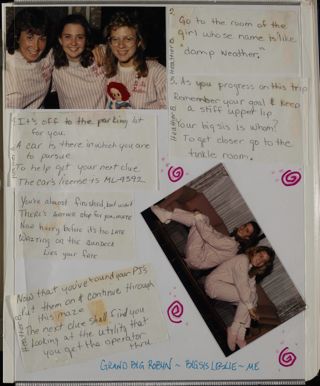 2.
Go to the room of the
girl whose name is like
"damp weather."
Heather B.
3. As you progress on this trip
Remember your goal & keep
a stiff upper lip
Your big sis is whom?
To get closer go to the
tinkle room.
Heather B.
It's off to the parking lot
for you.
A car is there in which you are
to pursue
To help get your next clue
The car's license is ML-4392
You're almost finished, but wait
There's
more
Now hurry before it's too late
Waiting on the sundeck
Lies your fate
Now that you've found your PJ's
Put them on & continue through
this maze
The next clue shall find you
Looking at the utility that
you get the operator
thru
Heather B.
GRAND BIG ROBYN ~ BIG SIS LESLIE ~ ME